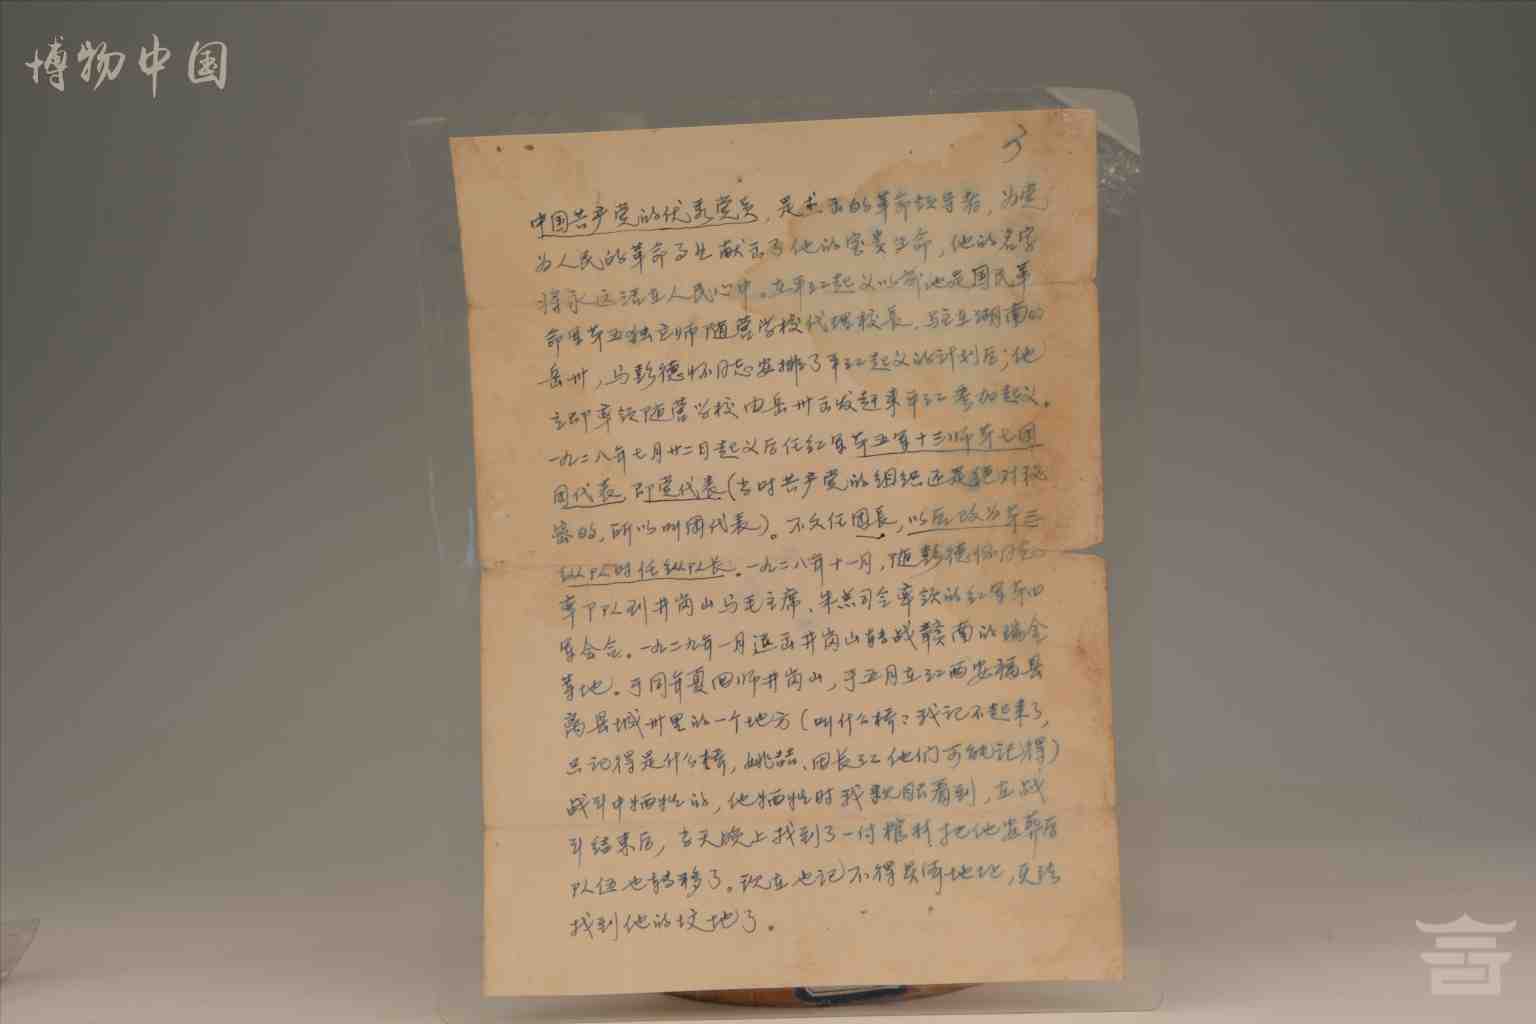 博物中国
3
中国共产党的优秀党员,是杰出的革命领导者,为党
为人民的革命事业献出了他的宝贵生命,他的名字
将永远活在人民心中。在平江起义以前他是国民革
命军第五独立师随营学校代理校长,驻在湖南的
岳州,与彭德怀同志安排了平江起义的计划后;他
立即率领随营学校由岳州出发赶来平江参加起义。
一九二八年七月廿二日起义后任红军第五军十三师第七团
团代表,即党代表(当时共产党的组织还是绝对秘
密的,所以叫团代表)。不久任团长,以后改为第三
纵队时任纵队长。一九二八年十一月,随彭德怀同志
率部队到井岗山与毛主席、朱总司令率领的红军第四
军会合。一九二九年一月退出井岗山转战赣南的瑞金
等地。于同年夏回师井岗山,于五月在江西安福县
离县城卅里的一个地方(叫什么桥?我记不起来了,
只记得是什么桥,姚喆、田长江他们可能记得)
战斗中牺牲的,他牺牲时我亲眼看到,在战
斗结束后,当天晚上找到了一付棺材把他安葬后
队伍也转移了。现在也记不得具体地址,无法
找到他的坟地了。